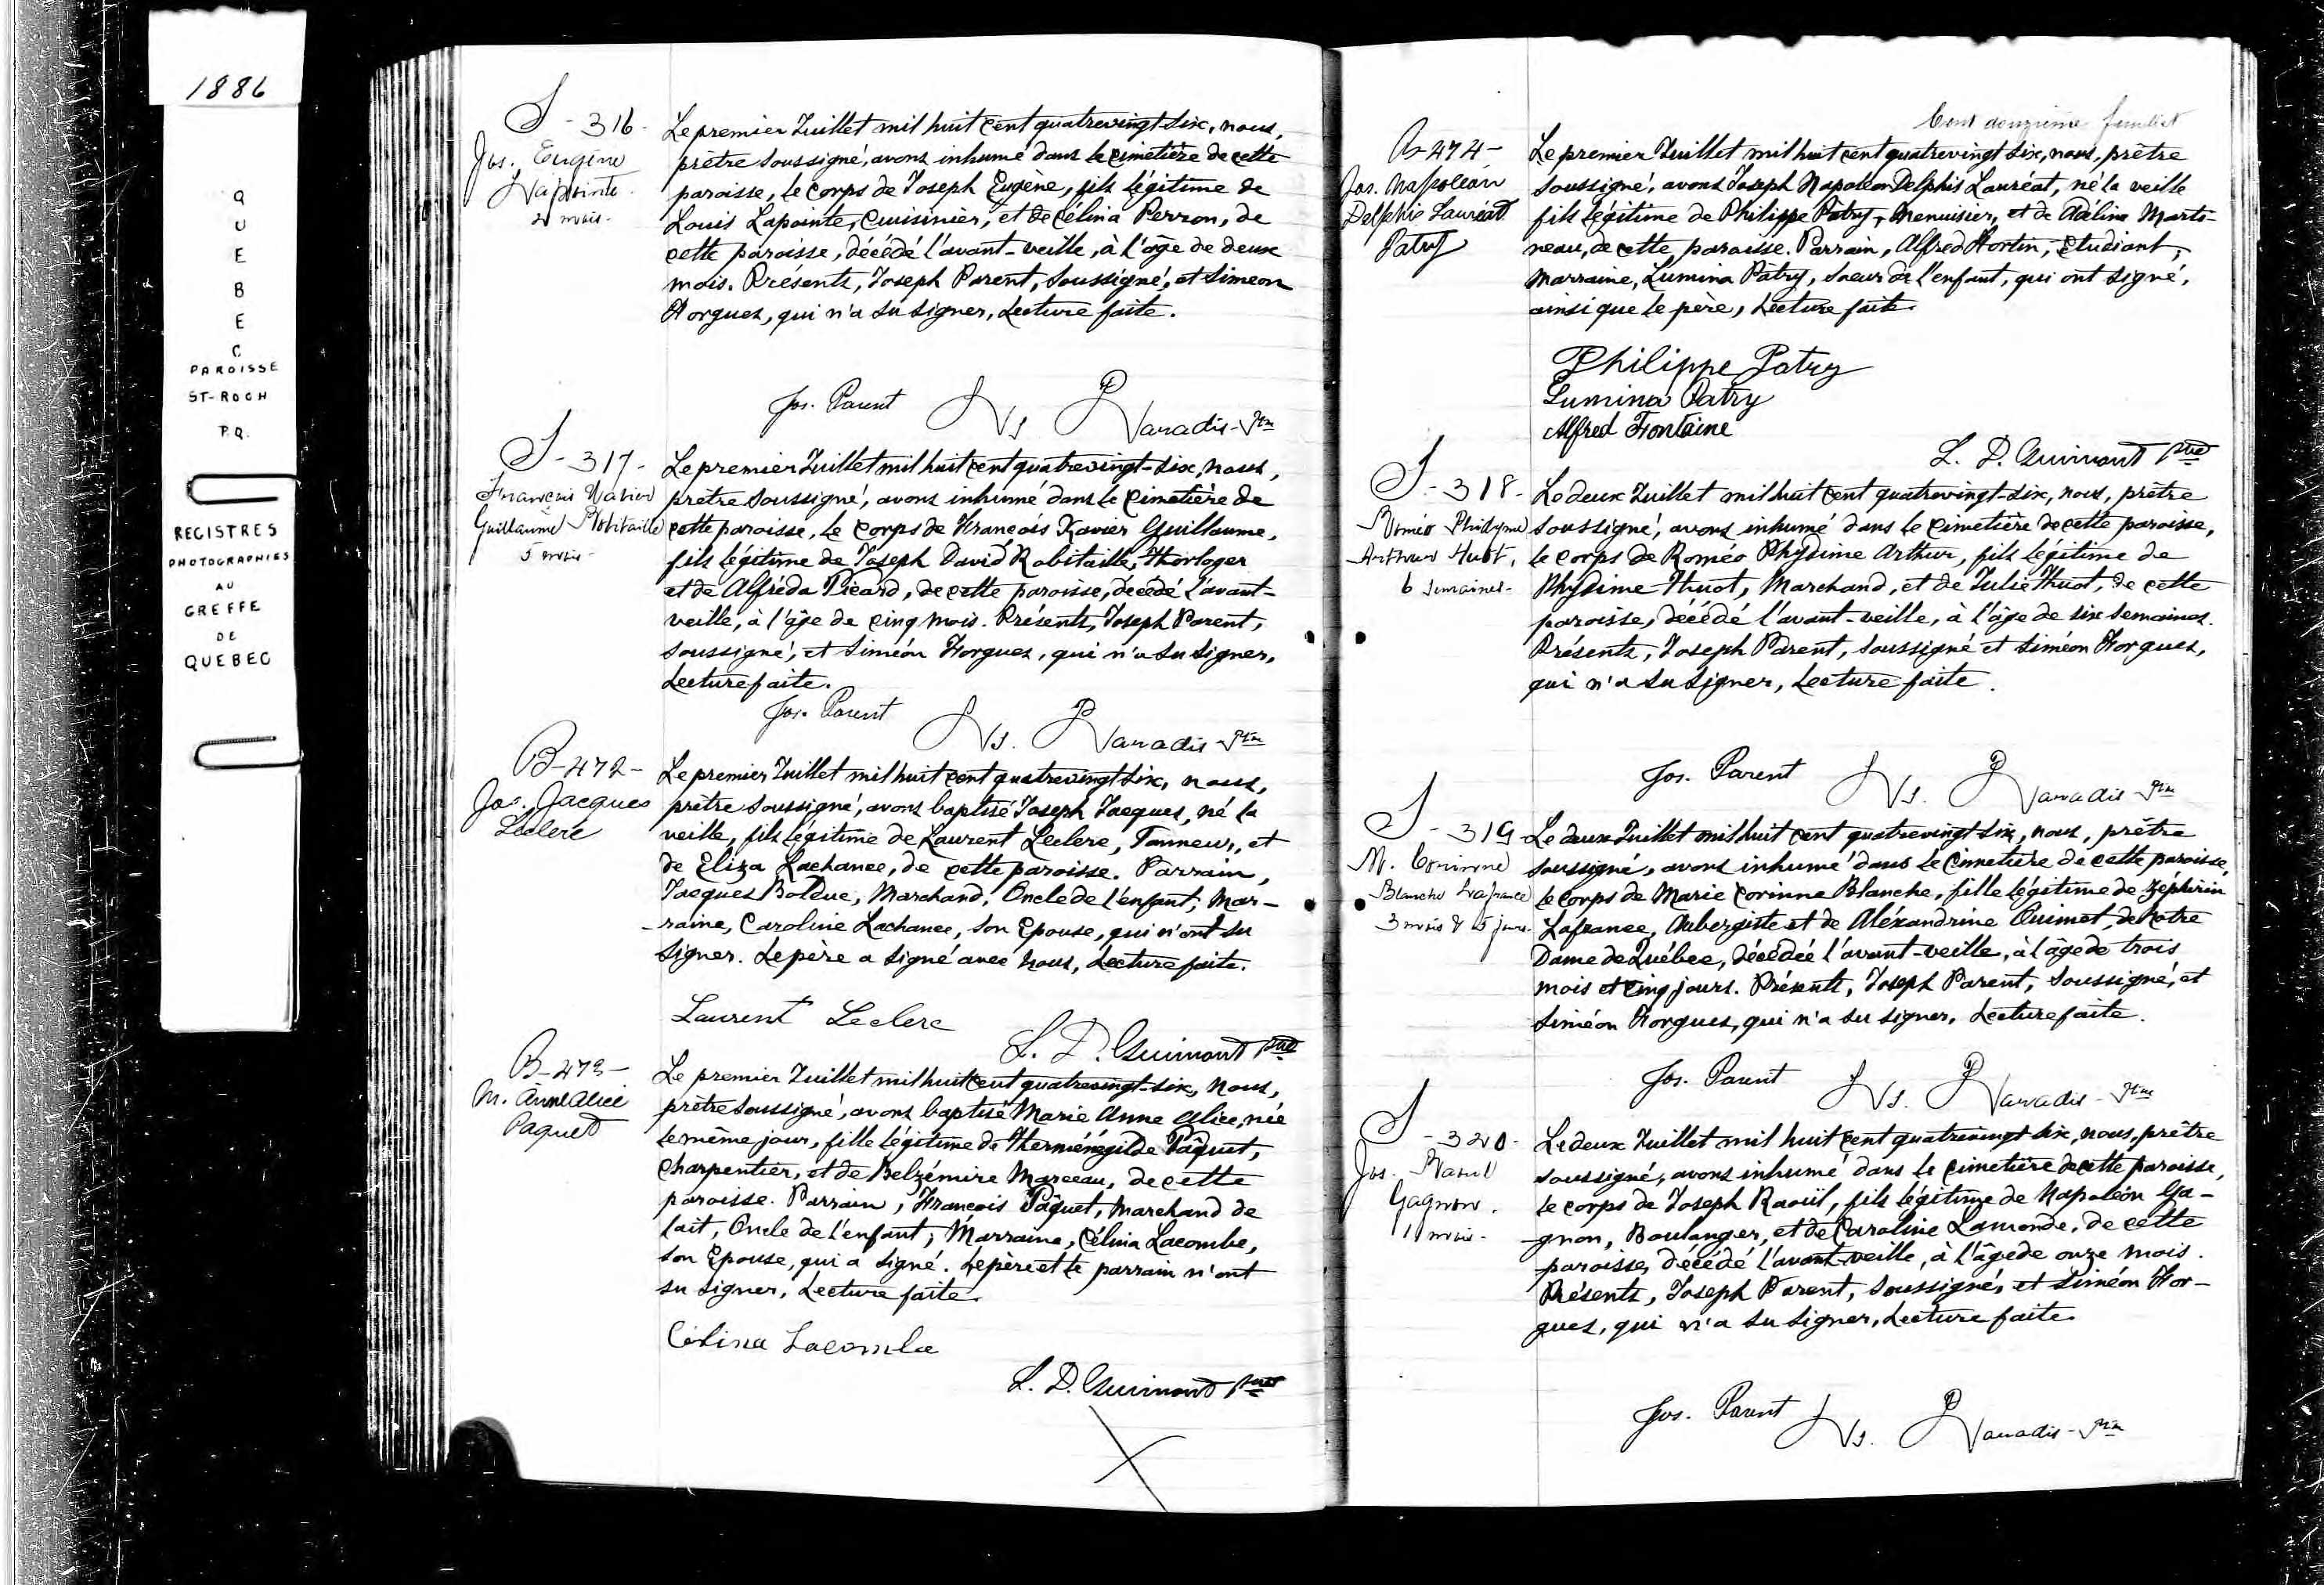 1886
Q
U
E
B
E
C
PAROISSE
ST-ROCH
P.Q.
REGISTRES
PHOTOGRAPHIES
AU
GREFFE
DE
QUEBEC
S-316-
Jos. Eugène
Lapointe
2 mois-
Le premier Juillet mil huit cent quatrevingt-six, nous,
prêtre soussigné, avons inhumé dans le cimetière de cette
paroisse, le corps de Joseph Eugène, fils légitime de
Louis Lapointe, Cuisinier, et de Célina Perron, de
cette paroisse, décédé l'avant-veille, à l'âge de deux
mois. Présents, Joseph Parent, soussigné, et Simeon
Forgues, qui n'a su signer, Lecture faite.
Jos. Parent Ls Paradis-Ptre
S-317-
François Xavier
Guillaume Robitaille
5 mois-
Le premier Juillet mil huit cent quatrevingt-six, nous,
prêtre soussigné, avons inhumé dans le Cimetière de
cette paroisse, le corps de François Xavier Guillaume,
fils légitime de Joseph David Robitaille, Horloger
et de Alfréda Picard, de cette paroisse, décédé l'avant-
veille, à l'âge de cinq mois. Présents, Joseph Parent,
soussigné, et Siméon Forgues, qui n'a su signer,
Lecture faite.
Jos. Parent Ls. Paradis-Ptre
B-472-
Jos. Jacques
Leclerc
Le premier Juillet mil huit cent quatrevingt six, nous,
prêtre soussigné, avons baptisé Joseph Jacques, né la
veille, fils légitime de Laurent Leclerc, Tanneur, et
de Eliza Lachance, de cette paroisse. Parrain,
Jacques Bolduc, Marchand, Oncle de l'enfant; Mar-
-raine, Caroline Lachance, son Epouse, qui n'ont su
signer. Le père a signé avec nous, Lecture faite.
Laurent Leclerc
L. D. Guimont ptre
B-473-
M. Anne Alice
Paquet
Le premier Juillet mil huit cent quatrevingt-six, nous,
prêtre soussigné, avons baptisé Marie Anne Alice, née
le même jour, fille légitime de Herménégilde Pâquet,
Charpentier, et de Belzémire Marceau, de cette
paroisse. Parrain, François Pâquet, Marchand de
lait, Oncle de l'enfant; Marraine, Célina Lacombe,
son Epouse, qui a signé. Le père et le parrain n'ont
su signer, Lecture faite.
Célina Lacombe
L. D. Guimont ptre
Cent douzième feuillet
B-474-
Jos. Napoléon
Delphis Lauréat
Patry
Le premier Juillet mil huit cent quatrevingt six, nous, prêtre
soussigné, avons Joseph Napoléon Delphis Lauréat, né la veille
fils légitime de Philippe Patry, Menuisier, et de Adéline Marti-
neau, de cette paroisse. Parrain, Alfred Fortin, étudiant;
Marraine, Lumina Patry, soeur de l'enfant, qui ont signé,
ainsi que le père, Lecture faite.
Philippe Patry
Lumina Patry
Alfred Fontaine
L. D. Guimont ptre
S-318-
Roméo Phidyme
Arthur Huot,
6 semaines-
Le deux Juillet mil huit cent quatrevingt-six, nous, prêtre
soussigné, avons inhumé dans le cimetière de cette paroisse,
le corps de Roméo Phydime Arthur, fils légitime de
Phydime Huot, Marchand, et de Julie Huot, de cette
paroisse, décédé l'avant-veille, à l'âge de six semaines.
Présents, Joseph Parent, soussigné et Siméon Forgues,
qui n'a su signer, Lecture faite.
Jos. Parent Ls. Paradis Ptre
S-319
M. Corinne
Blanche Lafrance
3 mois & 5 jours.
Le deux Juillet mil huit cent quatrevingt six, nous, prêtre
soussigné, avons inhumé dans le cimetière de cette paroisse,
le corps de Marie Corinne Blanche, fille légitime de Zéphirin
Lafrance, Aubergiste et de Aléxandrine Ouimet, de Notre
Dame de Québec, décédée l'avant-veille, à l'âge de trois
mois et cinq jours. Présents, Joseph Parent, soussigné, et
Siméon Forgues, qui n'a su signer, Lecture faite.
Jos. Parent Ls. Paradis-Ptre
S-320-
Jos. Raoul
Gagnon.
11 mois-
Le deux Juillet mil huit cent quatrevingt six, nous, prêtre
soussigné, avons inhumé dans le cimetière de cette paroisse,
le corps de Joseph Raoul, fils légitime de Napoléon Ga-
-gnon, Boulanger, et de Caroline Lamonde, de cette
paroisse, décédé l'avant-veille, à l'âge de onze mois.
Présents, Joseph Parent, soussigné, et Siméon For-
gues, qui n'a su signer, Lecture faite.
Jos. Parent Ls. Paradis-Ptre